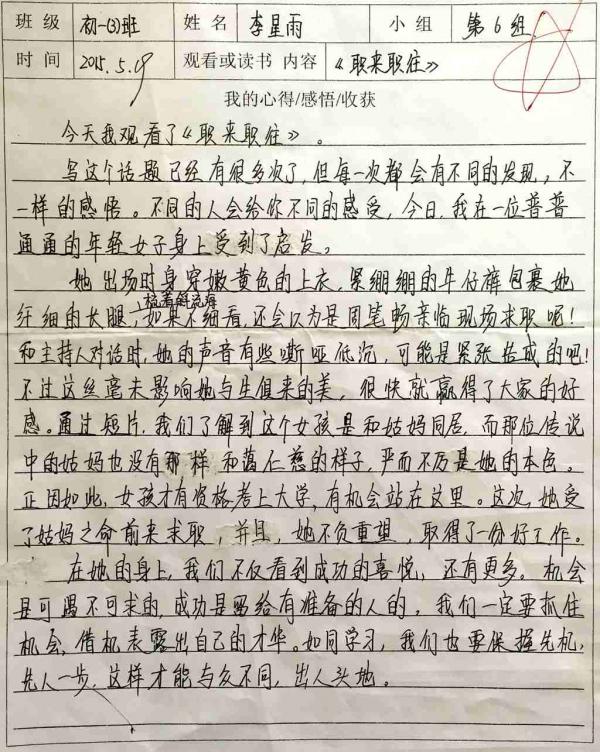 班级 初一(3)班 姓名 李星雨 小组 第6组
时间 2015.5.19 观看或读书 内容 《职来职往》
我的心得/感悟/收获
今天我观看了《职来职往》。
写这个话题已经有很多次了，但每一次都会有不同的发现，不
一样的感悟。不同的人会给你不同的感受，今日，我在一位普普
通通的年轻女子身上受到了启发。
她出场时身穿嫩黄色的上衣，紧绷绷的牛仔裤包裹她
梳着斜流海
纤细的大腿，如果不细看，还会以为是周笔畅亲临现场求职呢！
和主持人对话时，她的声音有些嘶哑低沉，可能是紧张造成的吧！
不过这丝毫未影响她与生俱来的美，很快就赢得了大家的好
感。通过短片，我们了解到这个女孩是和姑妈同居，而那位传说
中的姑妈也没有那样和蔼仁慈的样子，严而不厉是她的本色。
正因如此，女孩才有资格考上大学，有机会站在这里。这次，她受
了姑妈之命前来求职，并且，她不负重望，取得了一份好工作。
在她的身上，我们不仅看到成功的喜悦，还有更多。机会
是可遇不可求的，成功是留给有准备的人的。我们一定要抓住
机会，借机表露出自己的才华。如同学习，我们也要保握先机，
先人一步，这样才能与众不同，出人头地。